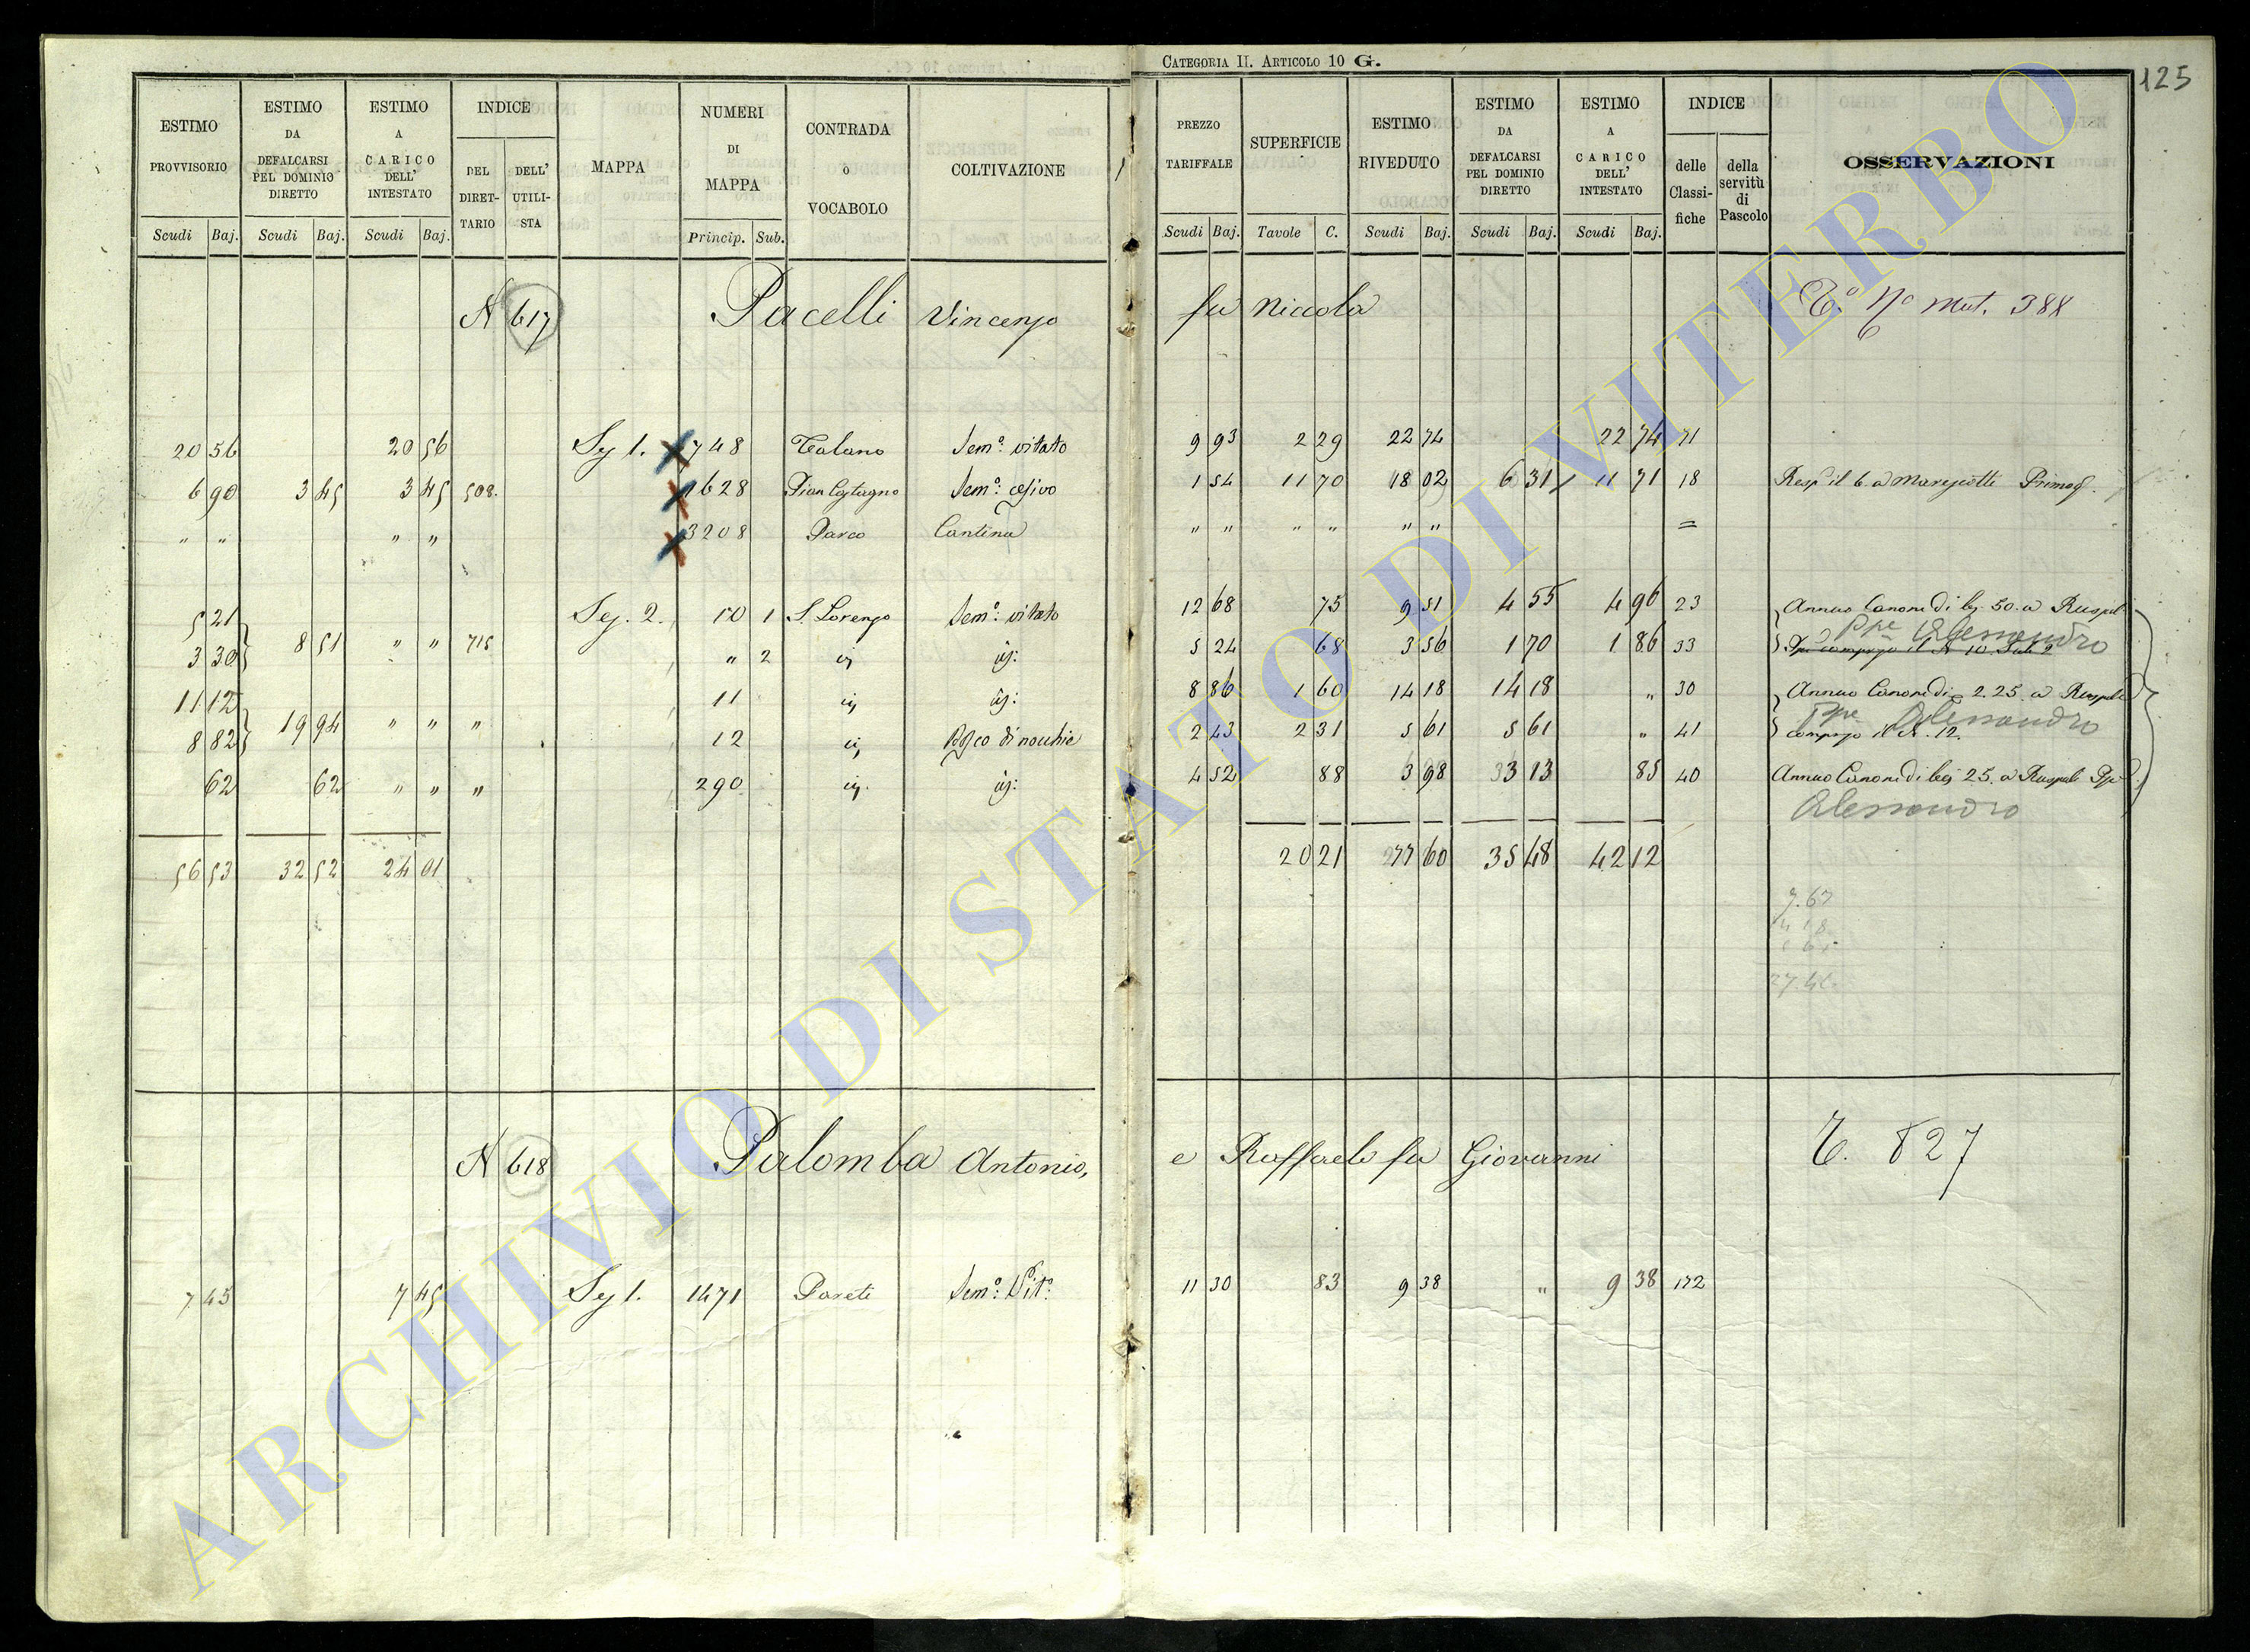 CATEGORIA II. ARTICOLO 10 G.
125
ESTIMO PROVVISORIO
ESTIMO DA DEFALCARSI PEL DOMINIO DIRETTO
ESTIMO A CARICO DELL' INTESTATO
INDICE
DEL DIRET-TARIO
DELL' UTILI-STA
MAPPA
NUMERI DI MAPPA
CONTRADA o VOCABOLO
COLTIVAZIONE
PREZZO TARIFFALE
SUPERFICIE
ESTIMO RIVEDUTO
ESTIMO DA DEFALCARSI PEL DOMINIO DIRETTO
ESTIMO A CARICO DELL' INTESTATO
INDICE
delle Classi-fiche
della servitù di Pascolo
OSSERVAZIONI
Scudi Baj. Scudi Baj. Scudi Baj. Princip. Sub. Scudi Baj. Tavole C. Scudi Baj. Scudi Baj. Scudi Baj.
N 617 Pacelli Vincenzo fu Niccola Mut. 388
20 56 20 56 Sez 1. 748 Talano Sem.o vitato 9 93 2 29 22 74 22 74 71
6 90 3 45 3 45 508. 1628 Sem.o 1 54 11 70 18 02 6 31 11 71 18 Resp. il 6. a Marescotti
" " " " 3208 Parco Cantina " " " " " " =
5 21 Sez. 2. 10 1 S. Lorenzo Sem.o vitato 12 68 75 9 51 4 55 4 96 23 Annuo Canone di bj. 50. a Ruspoli
8 51 " " 715 Ppe Alessandro
3 30 " 2 5 24 68 3 56 1 70 1 86 33
11 12 11 8 86 1 60 14 18 14 18 " 30 Annuo Canone di 2.25. a Ruspoli
19 94 " " " Ppe Alessandro
8 82 12 Bosco di nocchie 2 43 2 31 5 61 5 61 " 41 compreso il N. 12.
62 62 " " " 290 4 52 88 3 98 3 13 85 40 Annuo Canone di baj 25. a Ruspoli Ppe
Alessandro
56 53 32 52 24 01 20 21 77 60 35 48 42 12
N 618 Palomba Antonio, e Raffaele fu Giovanni 827
7 45 7 45 Sez 1. 1471 Parete Sem.o Vit.o 11 30 83 9 38 " 9 38 172
ARCHIVIO DI STATO DI VITERBO